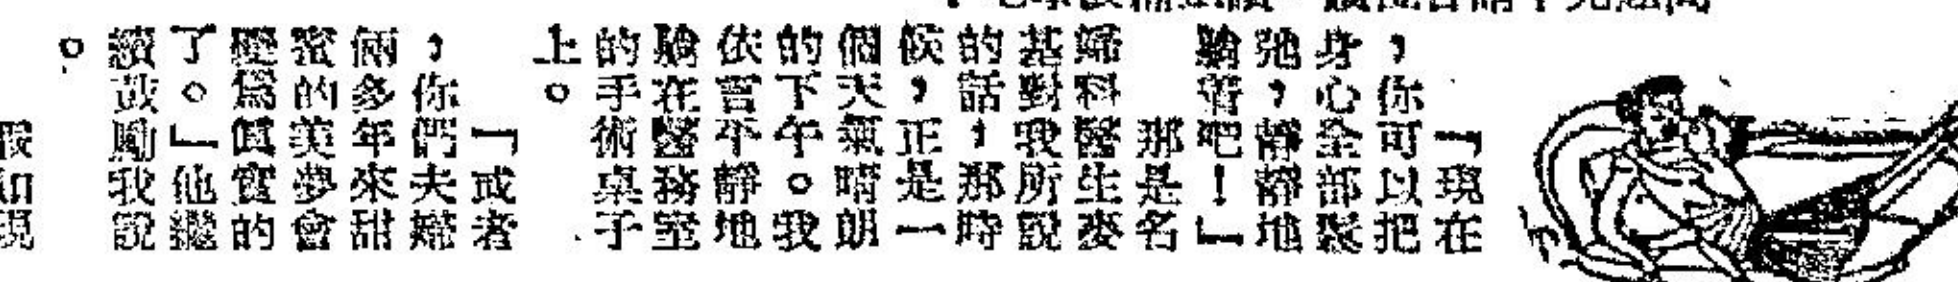 「現在
，你可以把
身心全部鬆
弛，靜靜地
躺着吧！」
那是名
婦科醫生麥
基對我所說
的話，那時
候，正是一
個天氣晴朗
的下午。我
依言平靜地
躺在醫務室
的手術桌子
上。
「或者
，你們夫婦
倆多年來甜
蜜的美夢會
變爲眞實的
了。」他繼
續鼓勵我說
。